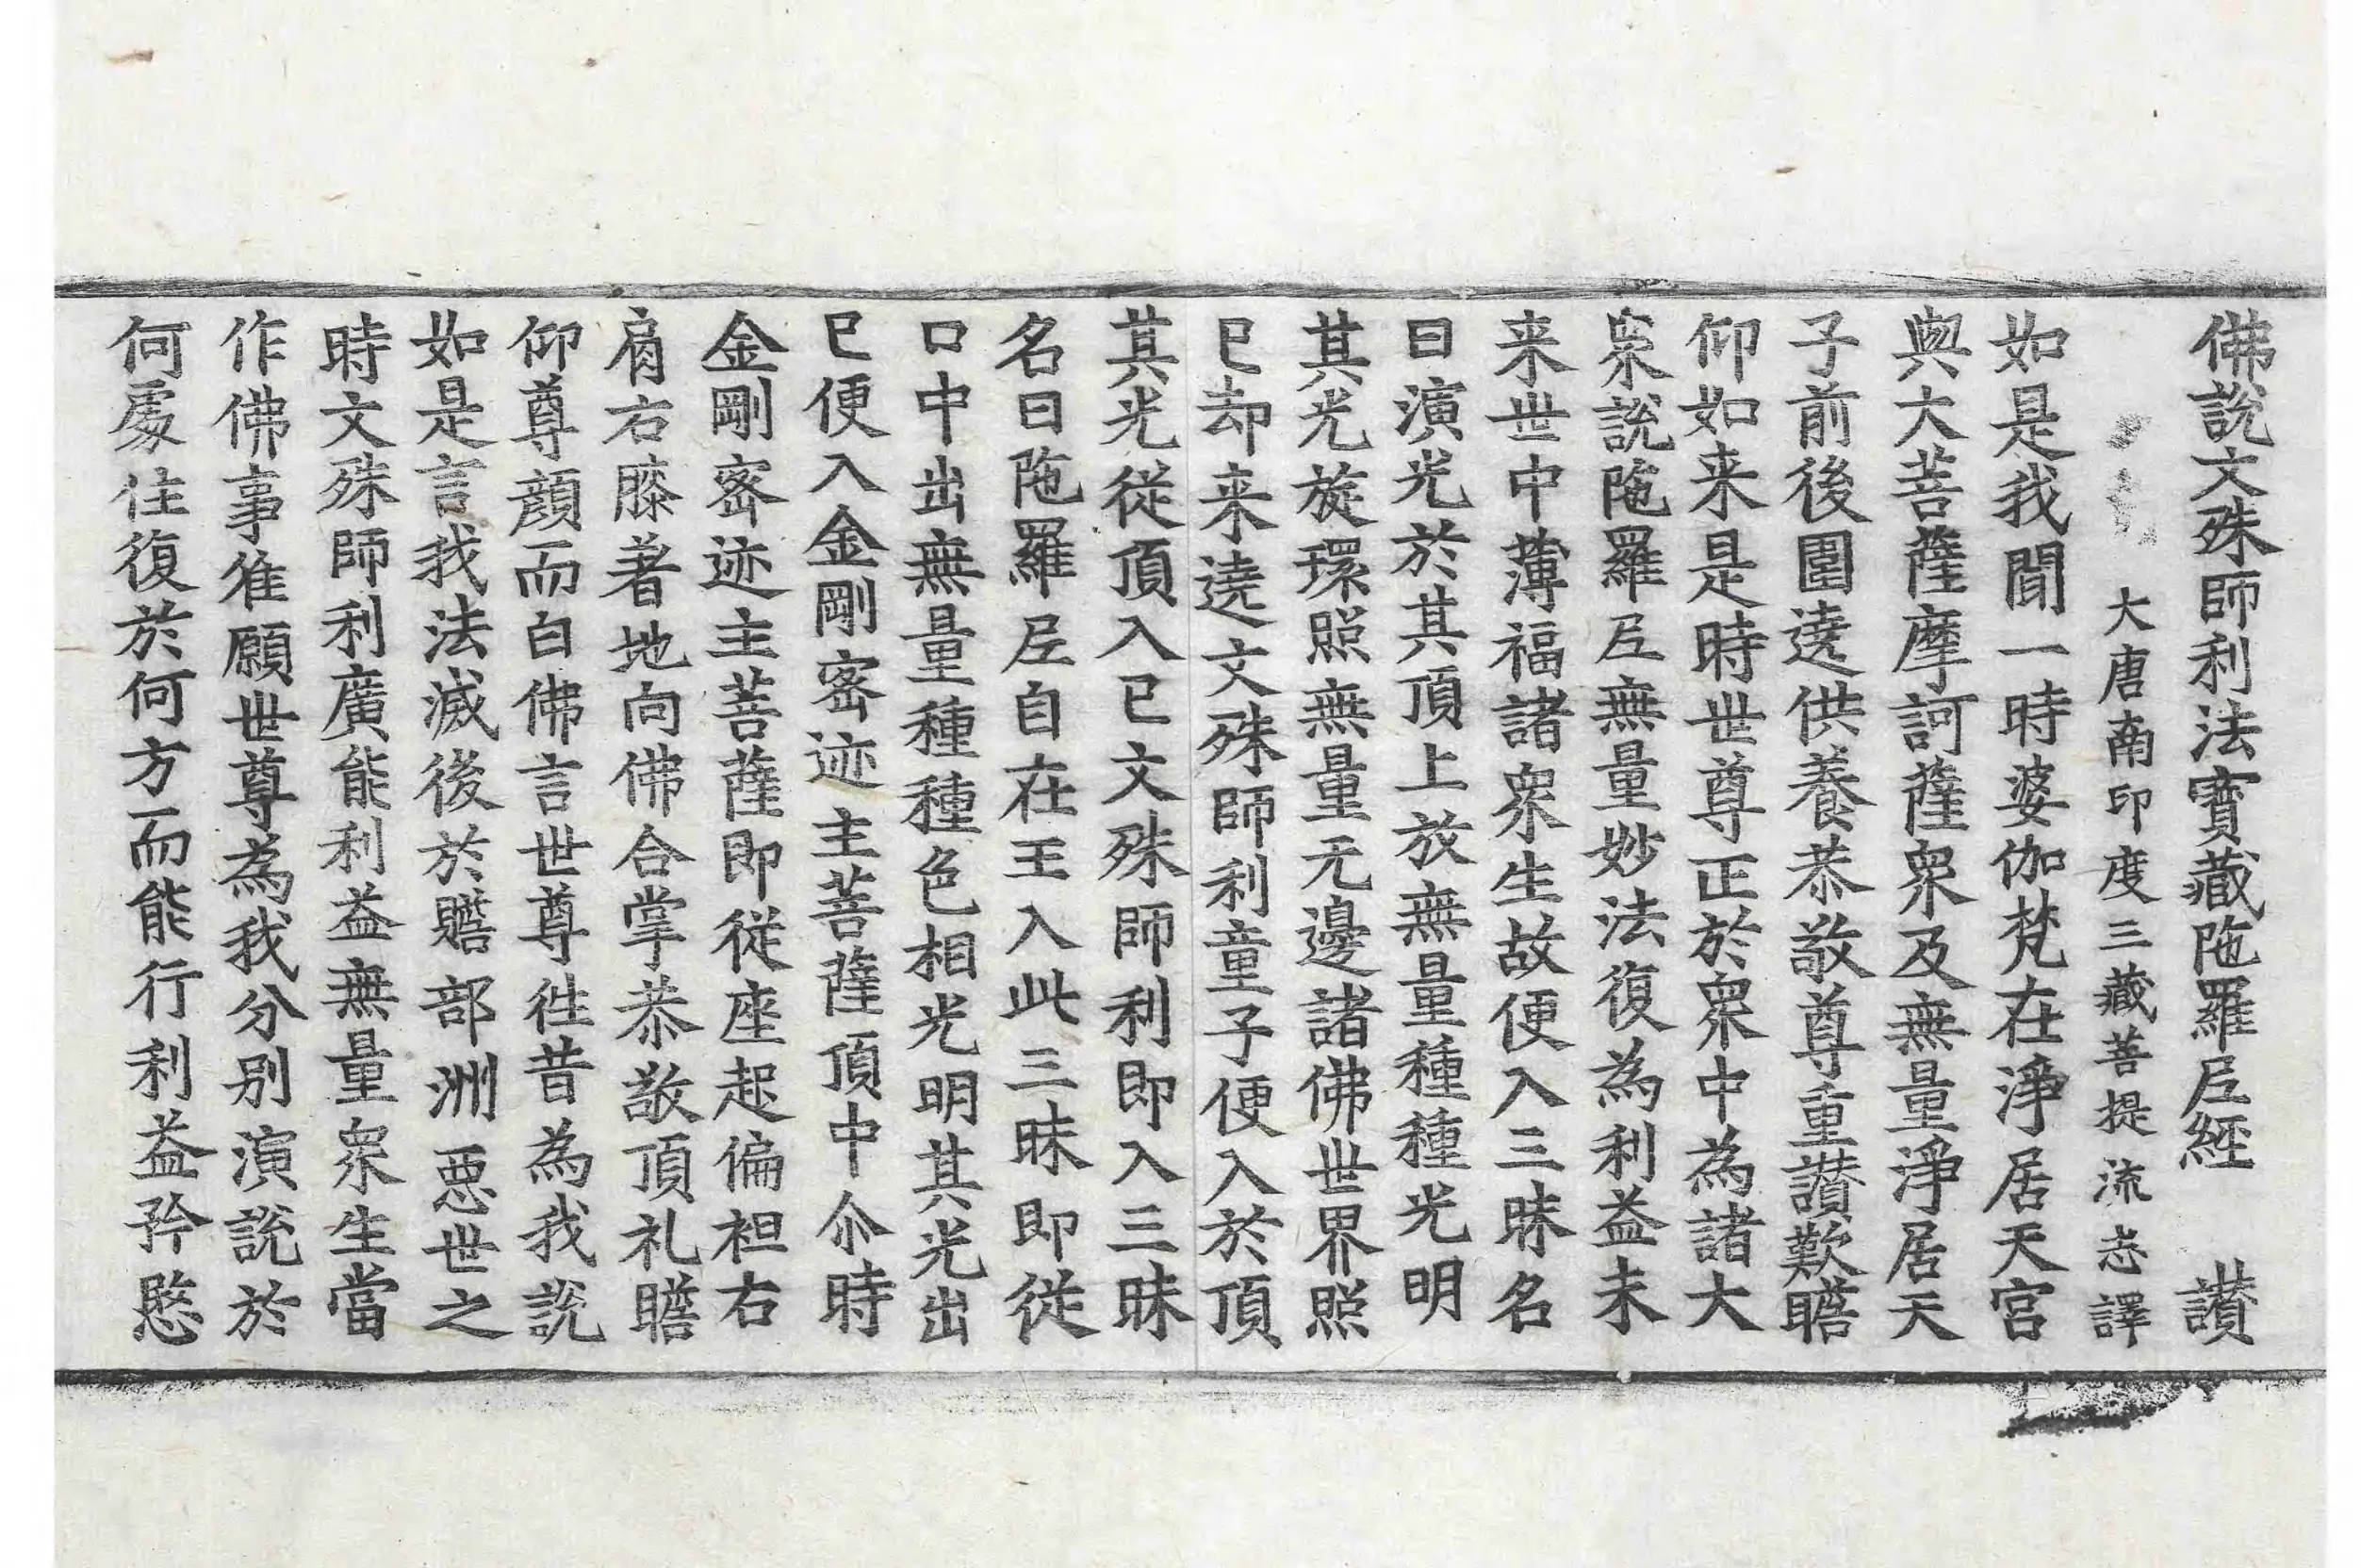 佛説文殊師利法寶藏陁羅尼經　讃
大唐南印度三藏菩提流志譯
如是我聞一時婆伽梵在淨居天宫
與大菩薩摩訶薩衆及無量淨居天
子前後圍遶供養恭敬尊重讃歎瞻
仰如来是時世尊正於衆中為諸大
衆説陁羅尼無量妙法復為利益未
来世中薄福諸衆生故便入三昧名
曰演光於其頂上放無量種種光明
其光旋環照無量无邊諸佛世界照
已却来遶文殊師利童子便入於頂
其光従頂入已文殊師利即入三昧
名曰陁羅尼自在王入此三昧即従
口中出無量種種色相光明其光出
已便入金剛宻迹主菩薩頂中尒時
金剛宻迹主菩薩即従座起偏袒右
肩右膝著地向佛合掌恭敬頂礼瞻
仰尊顔而白佛言世尊往昔為我説
如是言我法滅後於贍部洲惡世之
時文殊師利廣能利益無量衆生當
作佛事唯願世尊為我分别演説於
何處住復於何方而能行利益矜愍